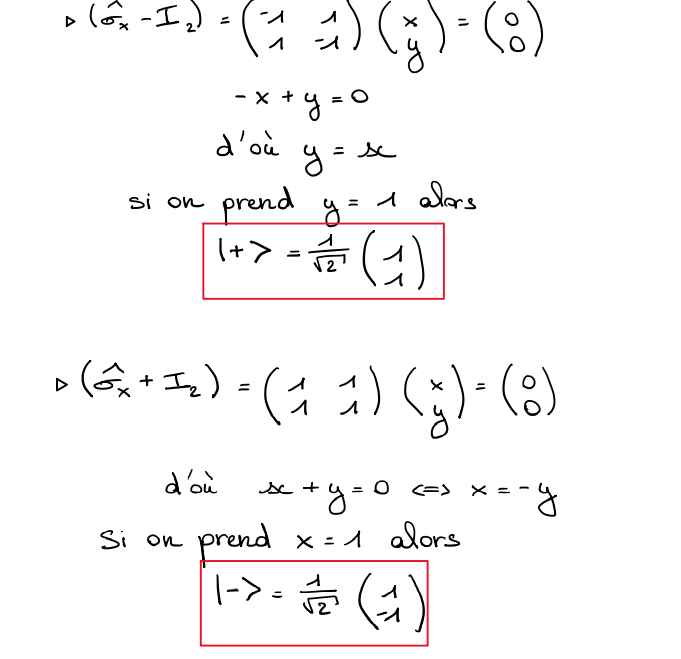 ▷ (σ̂ₓ - I₂) = (-1 1 ; 1 -1) (x ; y) = (0 ; 0)
-x + y = 0
d'où y = x
si on prend y = 1 alors
|+> = 1/√2 (1 ; 1)
▷ (σ̂ₓ + I₂) = (1 1 ; 1 1) (x ; y) = (0 ; 0)
d'où x + y = 0 <=> x = -y
Si on prend x = 1 alors
|-> = 1/√2 (1 ; -1)